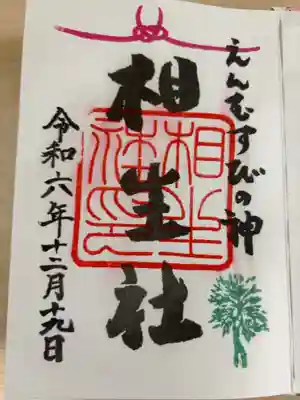 えんむすびの神
相生社
令和六年十二月十九日
相生社神印